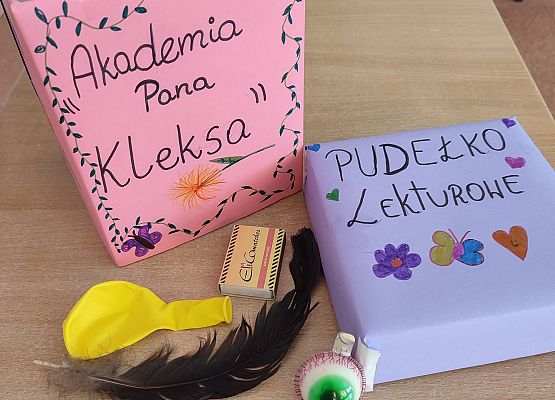 „Akademia
Pana
Kleksa”
PUDEŁKO
LEKTUROWE